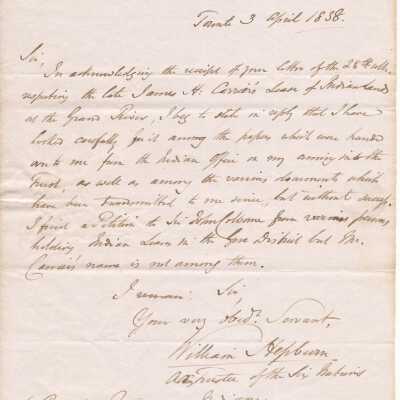 Toronto 3 April 1838.
Sir,
In acknowledging the receipt of your letter of the 28th ulto.
respecting the late James H. Carrai's Lease of Indian Land
at the Grand River, I beg to state in reply that I have
looked carefully for it among the papers which were handed
over to me from the Indian Office on my coming into the
Trust, as well as among the various documents which
have been transmitted to me since, but without success.
I find a Petition to Sir John Colborne from various persons
holding Indian Leases in the Gore District but Mr.
Carrai's name is not among them.
I remain, Sir,
Your very Obedt. Servant,
William Hepburn
Actg Trustee of the Six Nations
Indians